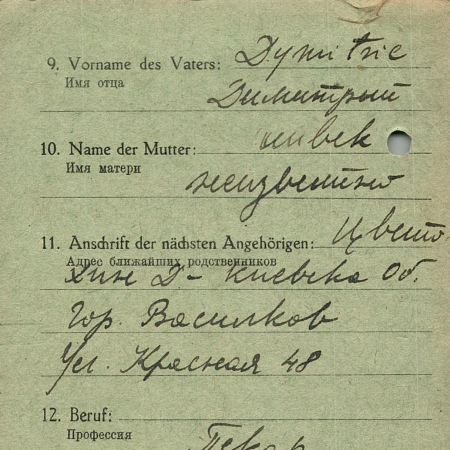 9. Vorname des Vaters: Dymitrie
Имя отца
Димитрый
10. Name der Mutter:
Имя матери
неизвестно
11. Anschrift der nächsten Angehörigen: Цвето
Адрес ближайших родственников
Д- Киевска Об.
Гор. Василков
Ул. Красная 48
12. Beruf:
Профессия
Пекар